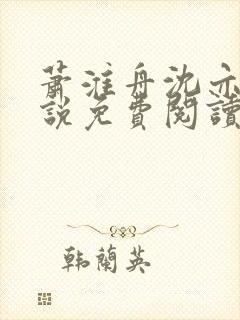 蕭淮舟沈亦
說免費閱讀
韩蘭英